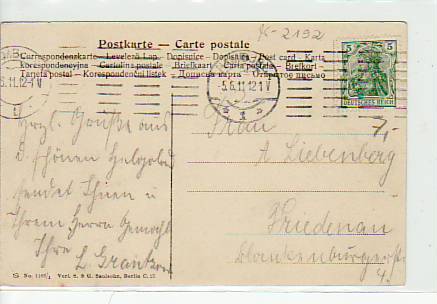 K-2192
Postkarte — Carte postale
Correspondenzkarte - Levelező Lap. Dopisnice - Dopisnica - Post card - Karta
korespondencyjna - Cartolina postale - Briefkaart - Carta postale - Brefkort
Tarjeta postal - Korespondenční listek - Дописна карта - Открытое письмо
5 5
DEUTSCHES REICH
5.6.11.12-1V
7,-
Herzl. Grüße aus
d. schönen Helgoland
sendet Ihnen u
Ihrem Herrn Gemahl
Ihre L.
Frau
A. Liebenberg
Friedenau
Blankenburgerstr
4.
S No. 1168/1 Verl. S. & G. Saulsohn, Berlin C.